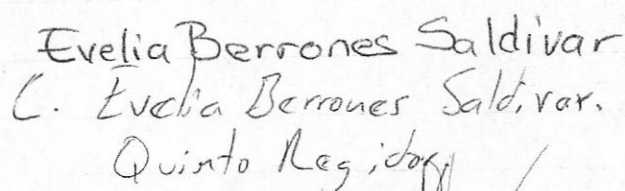 Evelia Berrones Saldivar
C. Evelia Berrones Saldivar.
Quinto Regidor